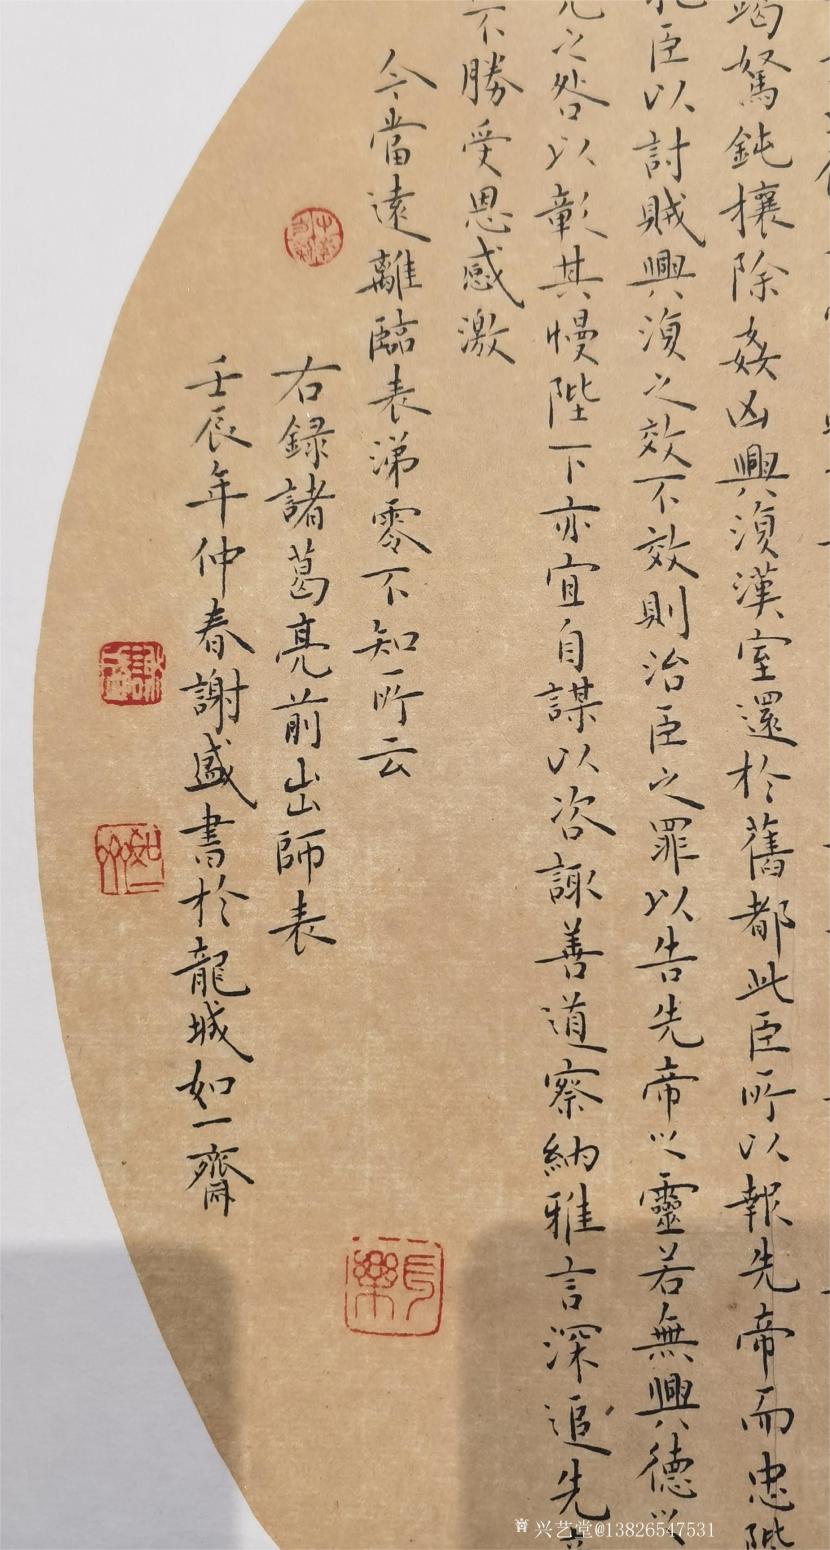 竭駑鈍攘除姦凶興澒漢室還於舊都此臣所以報先帝而忠陛
臣以討賊興澒之效不效則治臣之罪以告先帝之靈若無興德之
之咎以彰其慢陛下亦宜自謀以咨諏善道察納雅言深追先
不勝受恩感激
今當遠離臨表涕零不知所云
右録諸葛亮前出師表
壬辰年仲春謝盛書於龍城如一齋
長樂
兴艺堂@13826547531